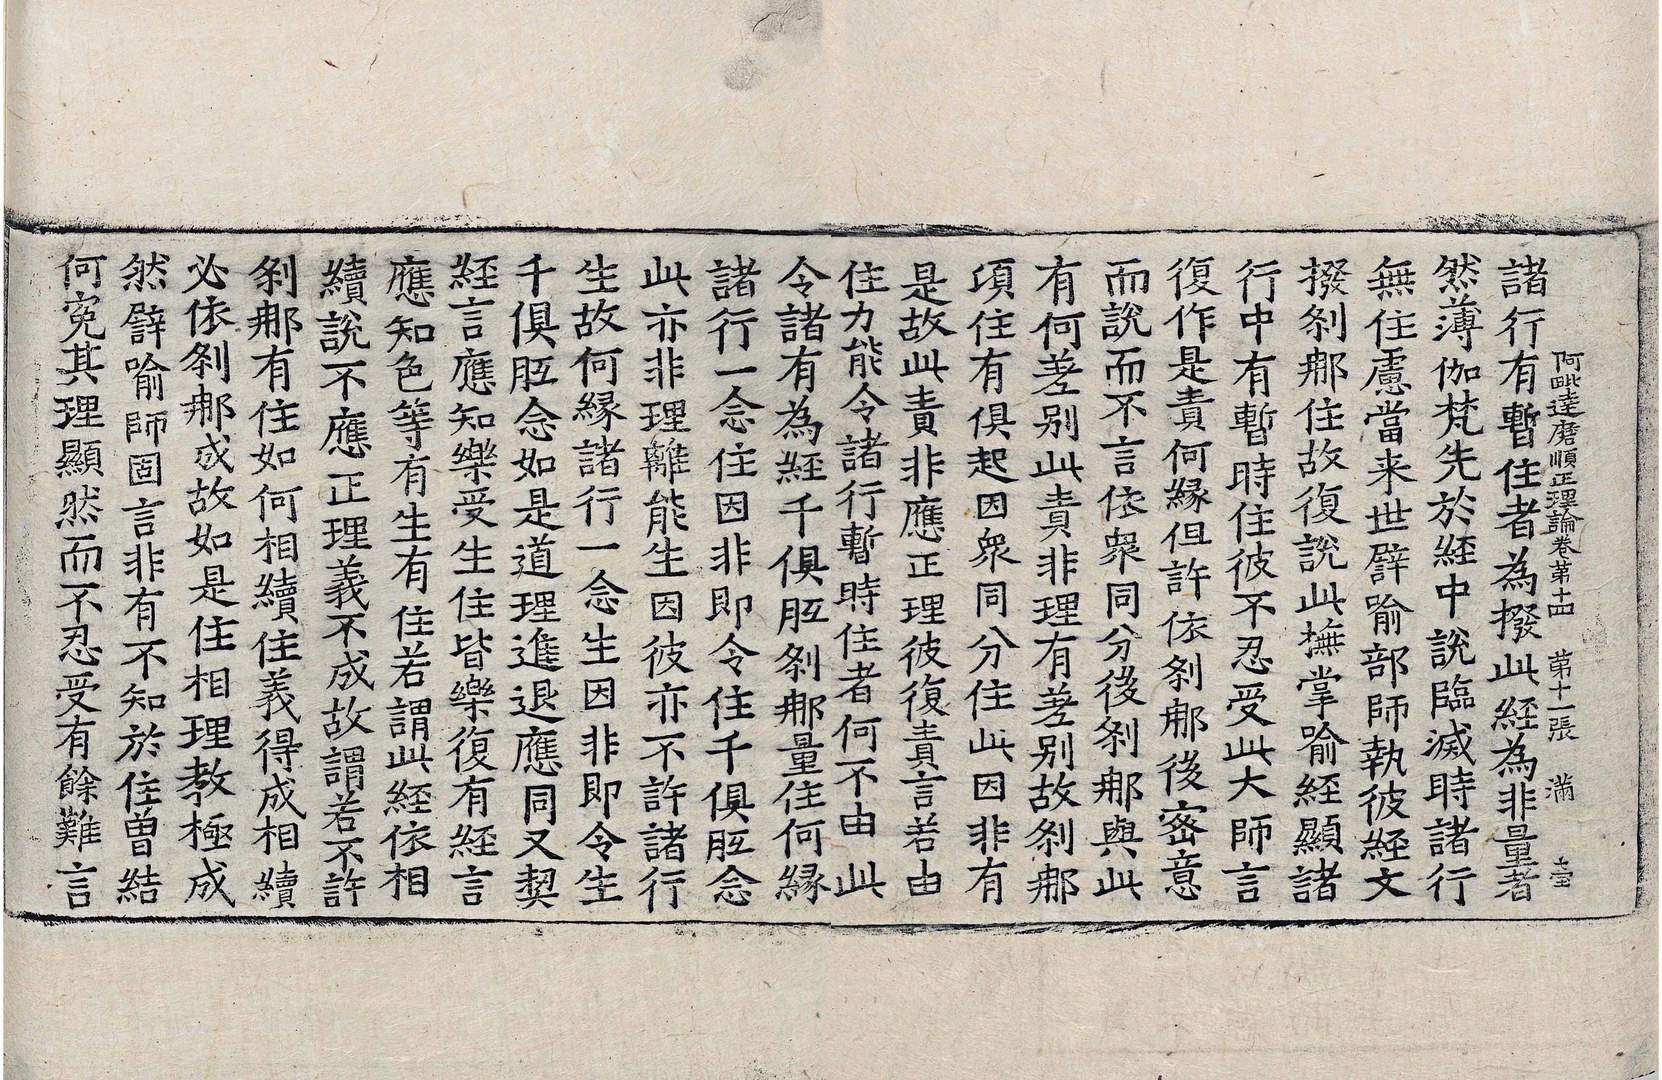 阿毗達磨順正理論卷第十四　第十一張　滿
諸行有暫住者為撥此経為非量者
然薄伽梵先於経中說臨滅時諸行
無住慮當来世譬喻部師執彼経文
撥刹那住故復說此撫掌喻経顯諸
行中有暫時住彼不忍受此大師言
復作是責何縁但許依刹那後密意
而說而不言依衆同分後刹那與此
有何差别此責非理有差别故刹那
項住有俱起因衆同分住此因非有
是故此責非應正理彼復責言若由
住力能令諸行暫時住者何不由此
令諸有為経千俱胝刹那量住何縁
諸行一念住因非即令住千俱胝念
此亦非理離能生因彼亦不許諸行
生故何縁諸行一念生因非即令生
千俱胝念如是道理進退應同又契
経言應知樂受生住皆樂復有経言
應知色等有生有住若謂此経依相
續說不應正理義不成故謂若不許
刹那有住如何相續住義得成相續
必依刹那成故如是住相理教極成
然譬喻師固言非有不知於住曾結
何寃其理顯然而不忍受有餘難言